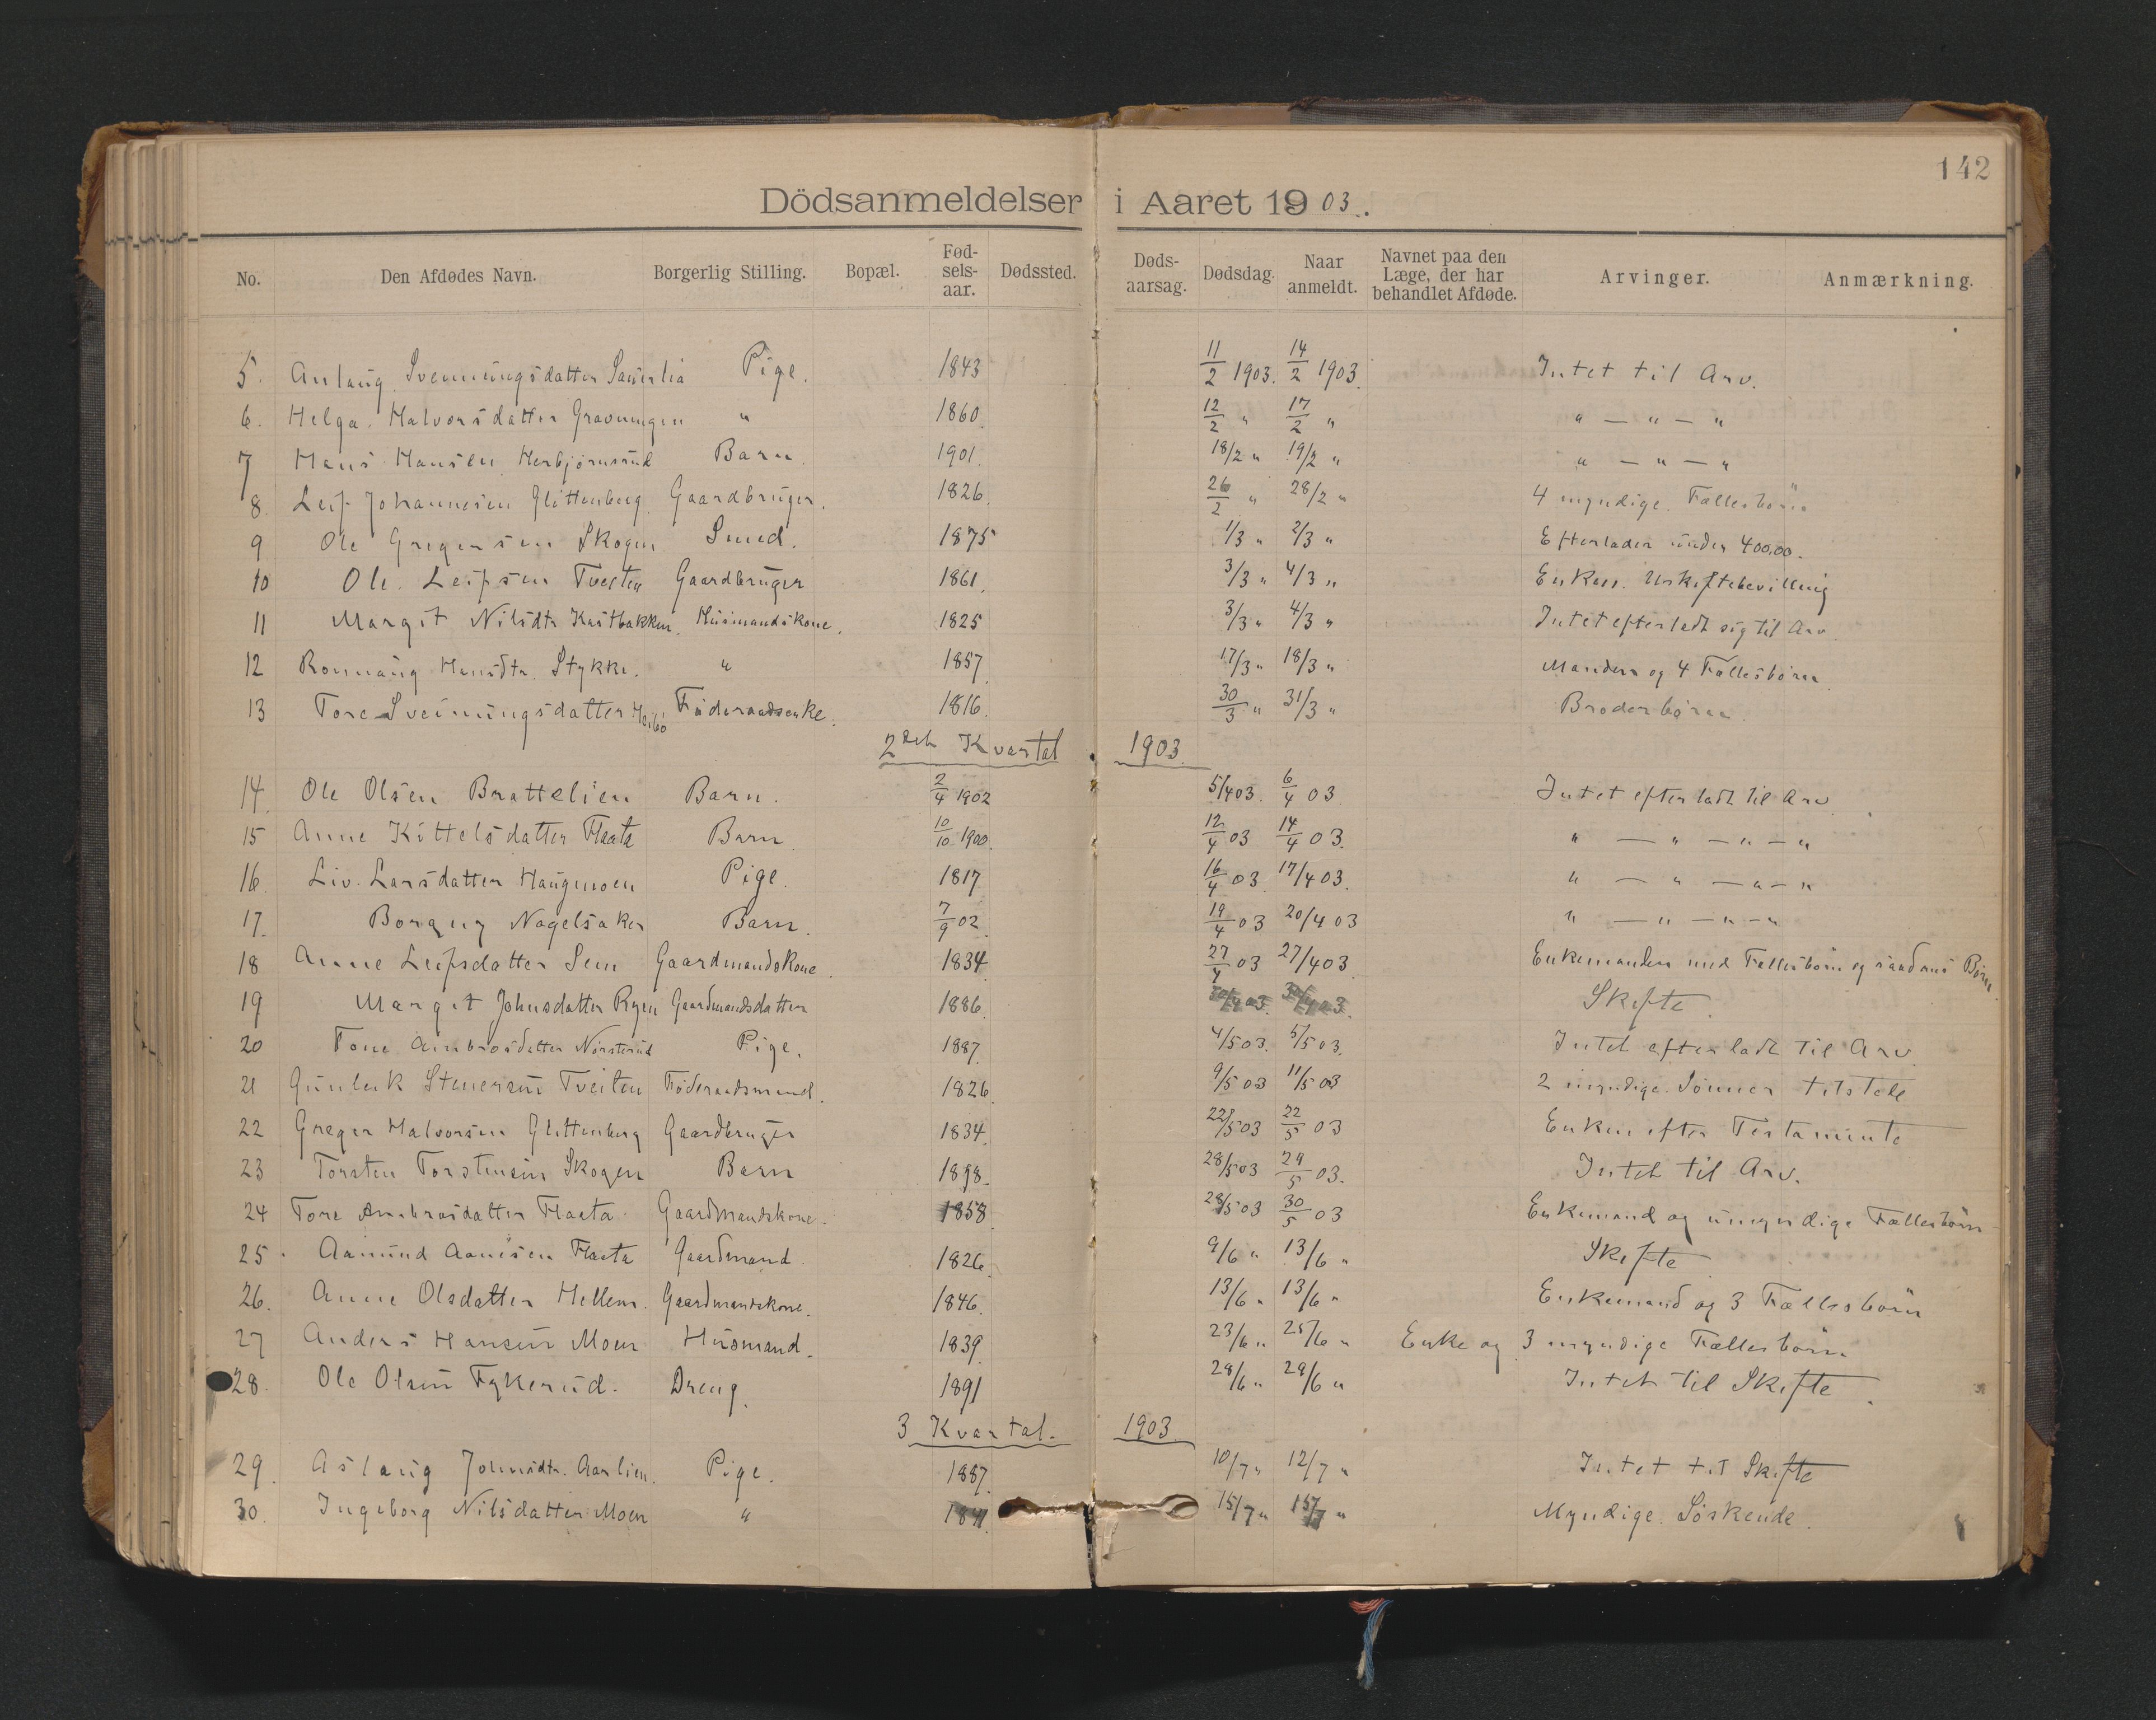 142
Dödsanmeldelser i Aaret 1903.
No. Den Afdødes Navn. Borgerlig Stilling. Bopæl. Fødselsaar. Dødssted. Dødsaarsag. Dødsdag. Naar anmeldt. Navnet paa den Læge, der har behandlet Afdøde. Arvinger. Anmærkning.
5. Svennungsdatter Pige. 1843 11/2 1903. 14/2 1903. Intet til Arv.
6. Helga Halvorsdatter Gravningen " 1860. 12/2 " 17/2 " " — " — "
7 Hans Hansen Herbjørnsrud Barn. 1901. 18/2 " 19/2 " " — " — "
8. Leif Johannesen Glittenberg. Gaardbruger. 1826. 26/2 " 28/2 " 4 myndige Fællesbørn
9 Ole Gregersen Skogen Smed. 1875 1/3 " 2/3 " Efterlader under 400,00.
10 Ole Leifsen Tveiten Gaardbruger 1861. 3/3 " 4/3 " Enken. Uskiftebevilling
11 Margit Nilsdtr Kastbakken. Husmandskone. 1825 3/3 " 4/3 " Intet efterladt sig til Arv.
12 Ronnaug Hansdtr. Stykke. " 1857 17/3 " 18/3 " Manden og 4 Fællesbørn
13 Tore Sveinungsdatter Føderaadsenke. 1816. 30/3 " 31/3 " Broderbørn
2det Kvartal 1903.
14 Ole Olsen Brattelien Barn. 2/4 1902 5/4 03. 6/4 03. Intet efterladt til Arv
15 Anne Kittelsdatter Flaata Barn. 10/10 1900. 12/4 03 14/4 03. " — " — " — "
16. Liv Larsdatter Haugmoen Pige. 1817 16/4 03. 17/4 03. " — " — " — "
17. Borgny Nagelsaker Barn. 7/9 02. 19/4 03 20/4 03 " — " — " — "
18 Anne Leifsdatter Sem Gaardmandskone. 1834 27/4 03 27/4 03. Enkemanden med Fællesbørn og Børn.
19 Margit Johnsdatter Ryen Gaardmandsdatter 1886. 30/4 03. 30/4 03. Skifte.
20 Tone Ambrosdatter Nørsterud Pige. 1887. 4/5 03. 5/5 03. Intet efterladt til Arv
21 Gunleik Steinersen Tveiten Føderaadsmand. 1826. 9/5 03 11/5 03 2 myndige Sønner tilstede
22 Greger Halvorsen Glittenberg Gaardbruger 1834. 22/5 03 22/5 03 Enken efter Testamente
23 Torsten Torstensen Skogen Barn 1898. 28/5 03 29/5 03. Intet til Arv.
24 Tore Ambrosdatter Flaata Gaardmandskone. 1858. 28/5 03 30/5 03 Enkemand og umyndige Fællesbørn
25 Aamund Aanesen Flaata Gaardmand 1826. 9/6 " 13/6 " Skifte
26. Anne Olsdatter Hellem. Gaardmandskone. 1846. 13/6 " 13/6 " Enkemand og 3 Fællesbørn
27 Anders Hansen Moen Husmand. 1839 23/6 " 25/6 " Enke og 3 myndige Fællesbørn
28. Ole Olsen Fykerud. Dreng. 1891 28/6 " 29/6 " Intet til Skifte.
3 Kvartal. 1903
29. Aslaug Johnsdtr. Aarlien. Pige. 1887. 10/7 " 12/7 " Intet til Skifte
30. Ingeborg Nilsdatter Moen " 1841. 15/7 " 15/7 " Myndige Søskende.